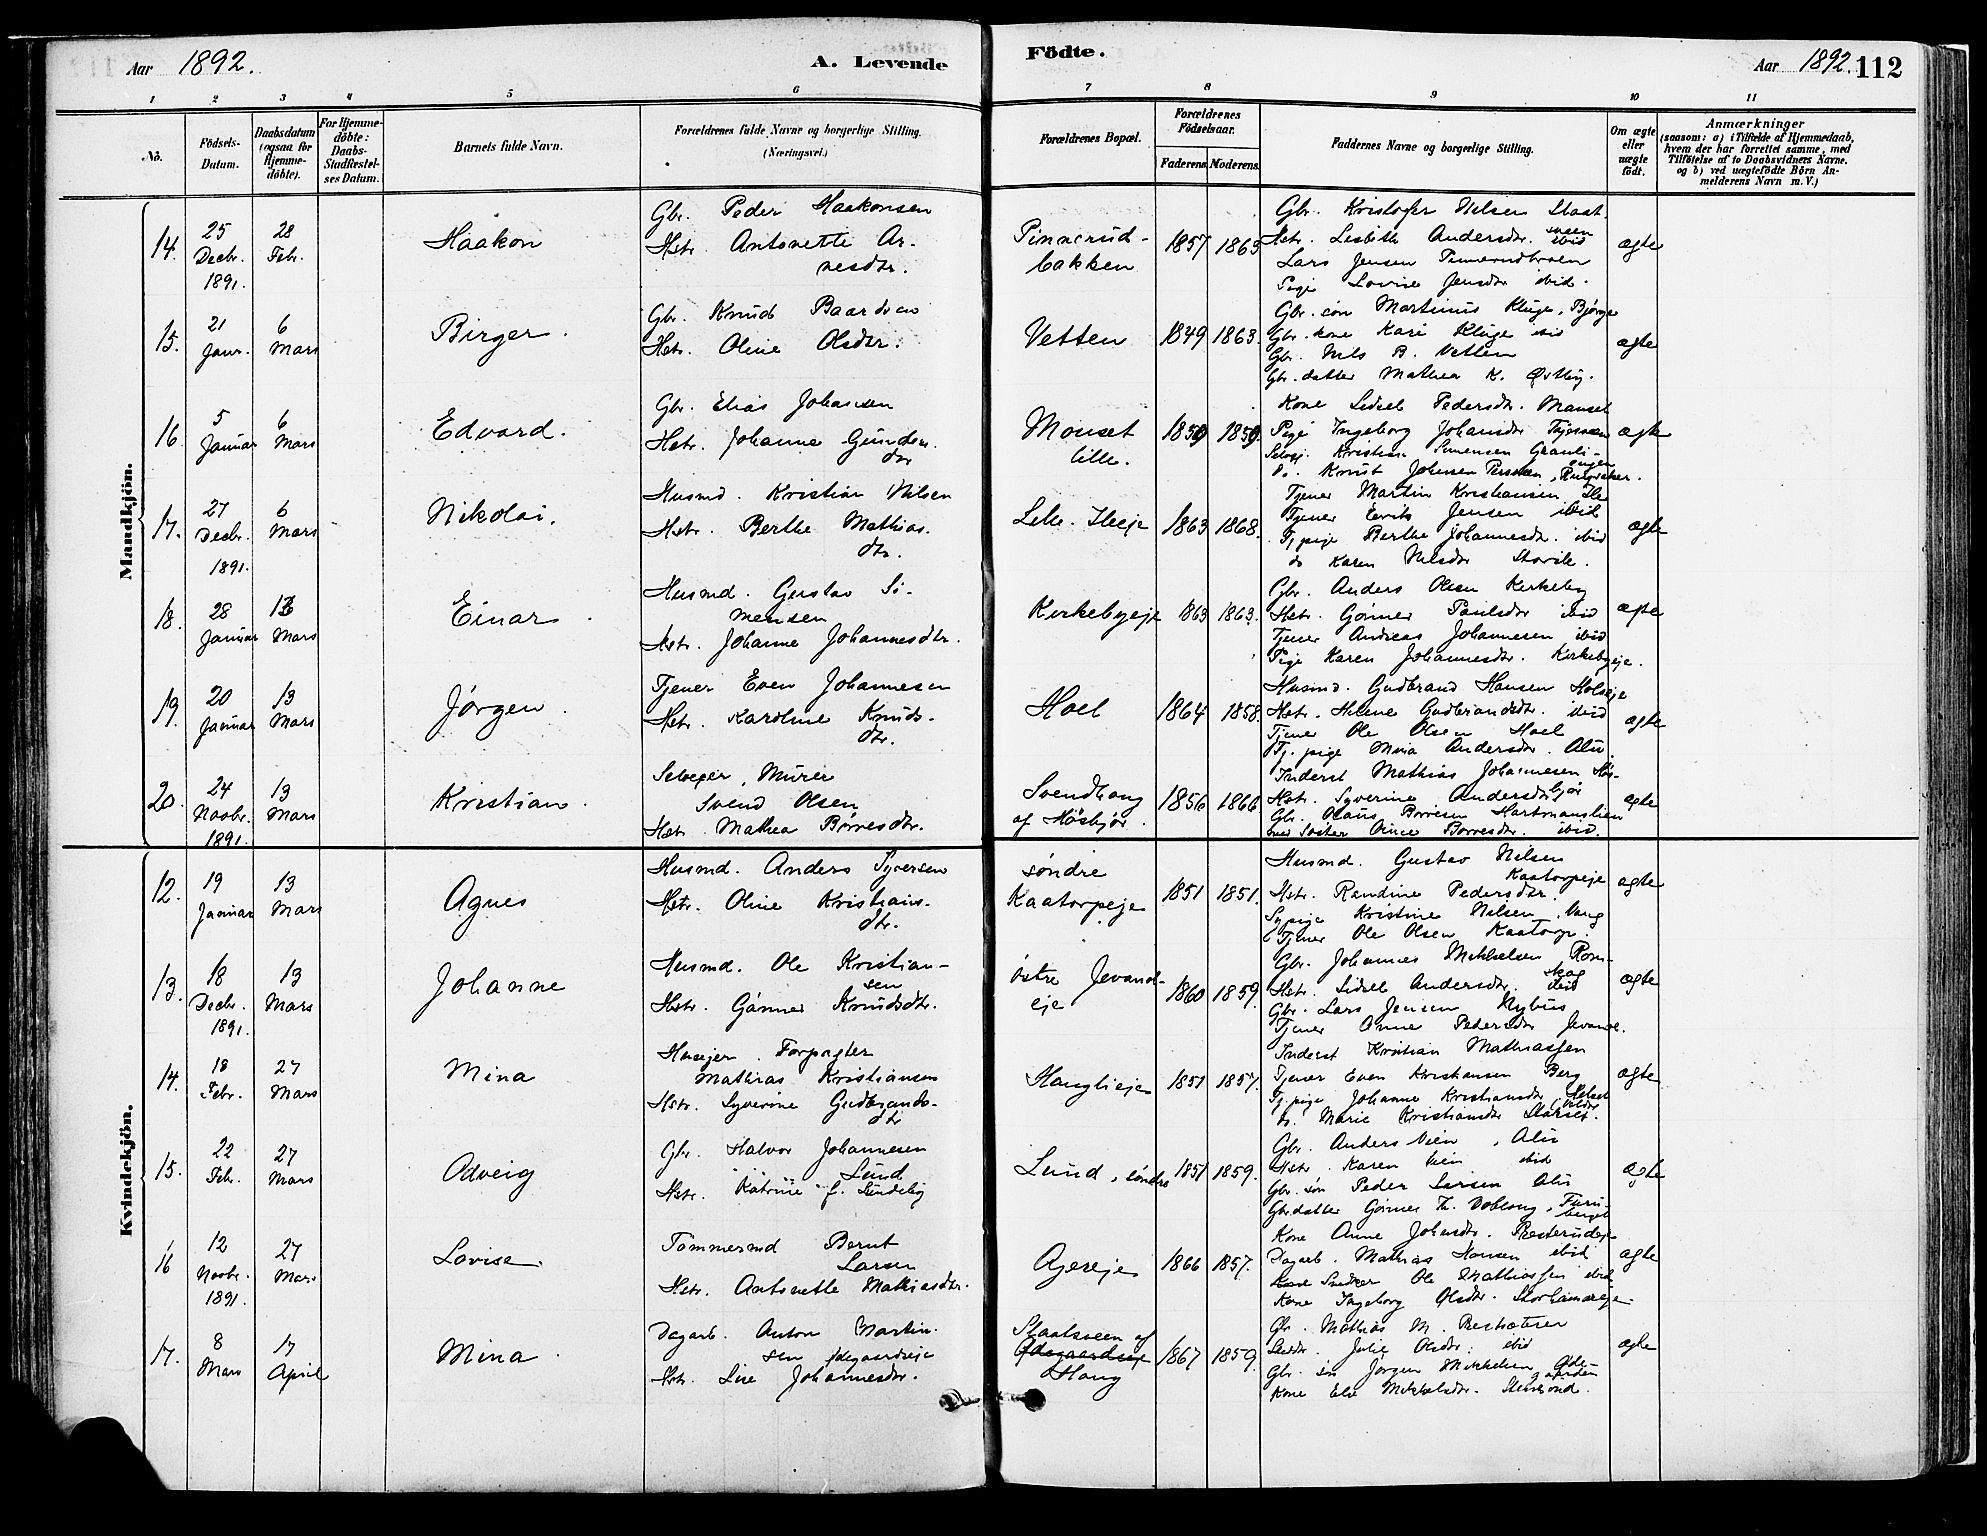 Aar 1892. A. Levende Födte. Aar 1892. 112
1 2 3 4 5 6 7 8 9 10 11
No. Födsels-Datum. Daabsdatum (ogsaa for Hjemme-döbte). For Hjemme-döbte: Daabs-Stadfæstel-ses Datum. Barnets fulde Navn. Forældrenes fulde Navne og borgerlige Stilling. (Næringsvei.) Forældrenes Bopæl. Forældrenes Födselsaar. Faderens. Moderens. Faddernes Navne og borgerlige Stilling. Om ægte eller uægte födt. Anmærkninger (saasom: a) i Tilfælde af Hjemmedaab, hvem der har forrettet samme, med Tilföielse af to Daabsvidners Navne. og b) ved uægtefödte Börn Anmelderens Navn m. V.)
Mandkjön.
14. 25 Decbr. 1891. 28 Febr. Haakon
Gbr. Peder Haakonsen
Hstr. Antonette Ar-
nesdtr.
Pinnerud-
bakken 1857 1863
Gbr. Kristofer Nilsen Staat
sveen
Hstr. Lisbeth Andersdtr. ibid
Lars Jensen
Pige Lovise Jensdtr ibid.
ægte
15. 21 Janr. 6 Mars Birger.
Gbr. Knud Baardsen
Hstr. Oline Olsdtr.
Vetten 1849 1863.
Gbr. søn Martinus Kluge, Bjørge
Gbr. kone Kari Kluge ibid
Gbr. Nils B. Vetten
Gbr. datter Mathea K. Østby.
ægte
16. 5 Januar 6 Mars Edvard.
Gbr. Elias Johansen
Hstr. Johanne Gunders.
dtr
Monset
lille. 1859 1859.
Kone Lidsel Pedersdtr. Manset
Pige Ingeborg Johansdtr
Selvej. Kristian Simensen
do. Knut Johansen
ægte
17. 27 Decbr. 1891. 6 Mars Nikolai.
Husmd. Kristian Nilsen
Hstr. Berthe Mathias.
dtr.
Lille. Ileeje 1863 1868.
Tjener Martin Kristiansen, Ile
Tjener Jensen ibid
Tj. pige Berthe Johannesdtr. ibid
do Karen Nilsdtr Storile.
ægte
18. 28 Januar 13 Mars Einar.
Husmd. Gustav Si-
mensen
Hstr. Johanne Johannesdtr.
Kirkebyeje 1863 1863.
Gbr. Anders Olsen Kirkeby
Hstr. Gønner Paulsdtr ibid
Tjener Andreas Johannesen ibid
Pige Karen Johannesdtr. Kirkebyeje.
ægte
19. 20 Januar 13 Mars Jørgen.
Tjener Even Johannesen
Hstr. Karoline Knuds-
dtr.
Hoel 1864 1858.
Husmd. Gudbrand Hansen Holseje
Hstr. Helene Gudbrandsdtr. ibid
Tjener Ole Olsen Hoel
Tj. pige Mina Andersdtr. Alu.
ægte
20. 24 Novbr. 1891. 13 Mars Kristian.
Selvejer, Murer
Svend Olsen
Hstr. Mathea Børresdtr.
Svendhaug
af Høsbjør. 1856 1866
Inderst Mathias Johannesen Høs-
bjør
Hstr. Syverine Andersdtr
Gbr. Olaus Børresen Hartmanslien
Søster Oline Børresdtr. ibid.
ægte
Kvindekjön.
12. 19 Januar 13 Mars Agnes
Husmd. Anders Syversen
Hstr. Oline Kristians-
dtr.
søndre
Kaatorpeje 1851 1851.
Husmd. Gustav Nilsen
Kaatorpeje
Hstr. Randine Pedersdtr.
Sypige Kristine Nilsen, Vang
Tjener Ole Olsen Kaatorp.
ægte
13. 18 Decbr. 1891. 13 Mars Johanne
Husmd. Ole Kristian-
sen
Hstr. Gønner Knudsdtr.
østre Jevand-
eje 1860 1859.
Gbr. Johannes Mikkelsen Rom-
skog
Hstr. Lidsel Andersdtr. ibid
Gbr. Lars Jensen Nyhus
Tjener Anne Pedersdtr Jevane.
ægte
14. 18 Febr. 27 Mars Mina
Husejer. Forpagter
Mathias Kristiansen
Hstr. Syverine Gudbrands-
dtr
Hauglieeje 1851 1857.
Inderst Kristian Mathiassen
Tjener Even Kristiansen Berg
Tj. pige Johanne Kristiansdtr
do. Marie Kristiansdtr
ægte
15. 22 Febr. 27 Mars Odveig
Gbr. Halvor Johannesen
Lund
Hstr. Katrine f. Sundeby
Lund, søndre 1851 1859.
Gbr. Anders Vien, Alu
Hstr. Karen Vien ibid
Gbr. søn Peder Larsen Alu
Gbr. datter Gønner Th. Doblong, Furu-
berget
ægte
16 12 Novbr. 1891. 27 Mars Lovise.
Tømmermd Bernt
Larsen
Hstr. Antonette Mathiasdtr.
Agereje 1866 1857.
Kone Anne Johansdtr. Presterudeje
Dagarb. Mathias Hansen ibid
Snedker Ole Mathiassen ibid
Kone Ingeborg Olsdtr. Storhamareje.
ægte
17. 8 Mars 17 April Mina.
Dagarb. Anton Martin.
sen Ødegaardseje
Hstr. Lise Johannesdtr.
Staatsveen af
Ødegaardseje
Haug 1867 1859.
Gbr. Mathias M.
Julie Olsdtr. ibid
Gbr. søn Jørgen Mikkelsen Øde-
gaarden
Kone Else Mikkelsdtr.
ægte